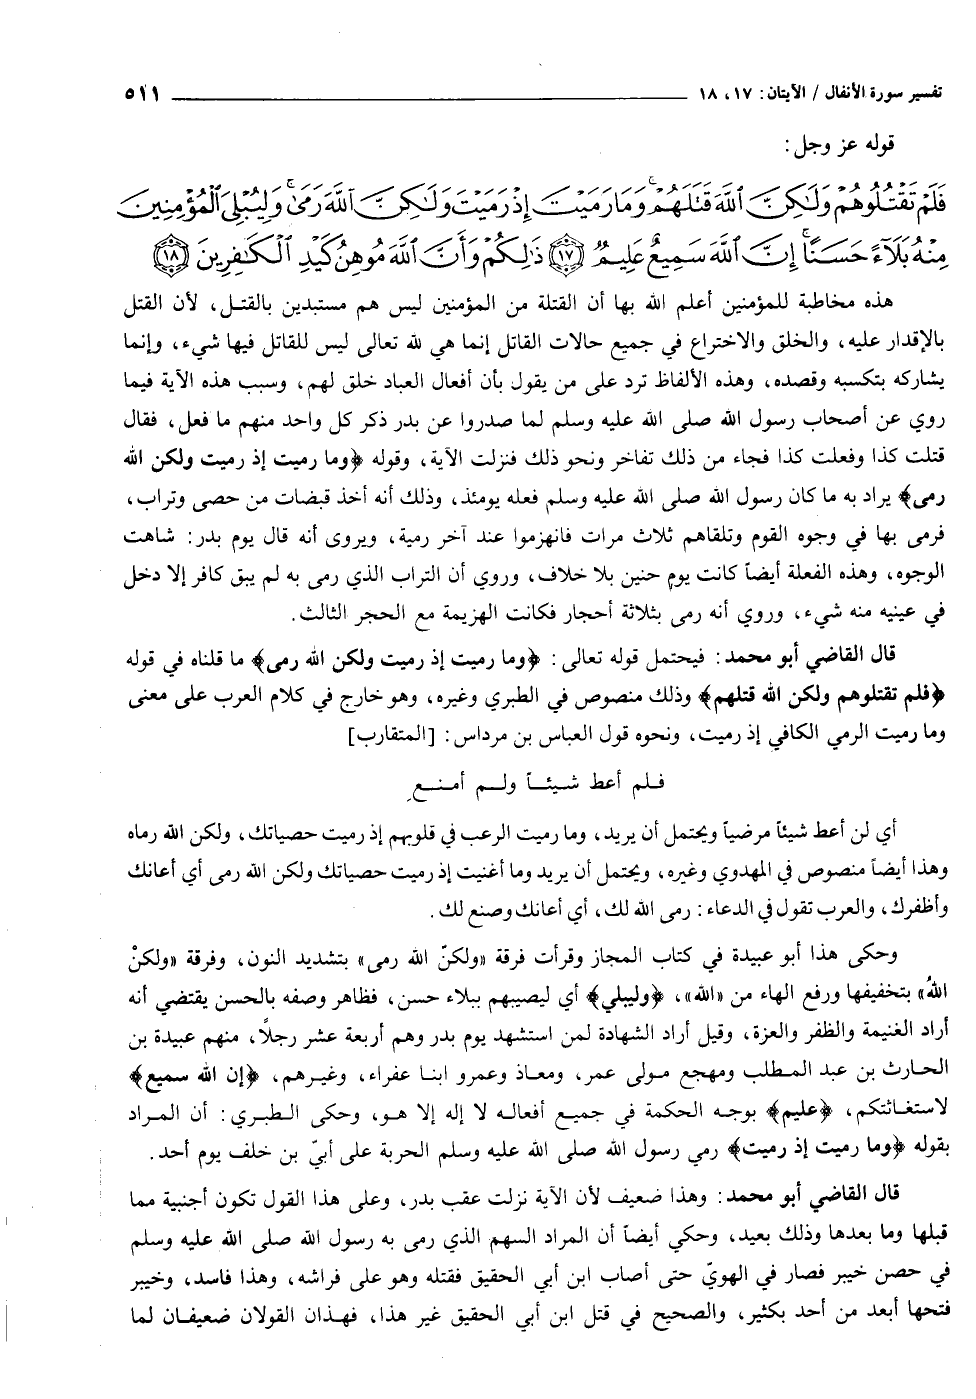 تفسير سورة الأنفال / الآيتان: ١٧، ١٨ ــــــــــ ٥١١
قوله عز وجل:
فَلَمْ تَقْتُلُوهُمْ وَلَٰكِنَّ ٱللَّهَ قَتَلَهُمْ ۚ وَمَا رَمَيْتَ إِذْ رَمَيْتَ وَلَٰكِنَّ ٱللَّهَ رَمَىٰ ۚ وَلِيُبْلِىَ ٱلْمُؤْمِنِينَ
مِنْهُ بَلَآءً حَسَنًا ۚ إِنَّ ٱللَّهَ سَمِيعٌ عَلِيمٌ ﴿١٧﴾ ذَٰلِكُمْ وَأَنَّ ٱللَّهَ مُوهِنُ كَيْدِ ٱلْكَٰفِرِينَ ﴿١٨﴾
هذه مخاطبة للمؤمنين أعلم الله بها أن القتلة من المؤمنين ليس هم مستبدين بالقتل، لأن القتل
بالإقدار عليه، والخلق والاختراع في جميع حالات القاتل إنما هي لله تعالى ليس للقاتل فيها شيء، وإنما
يشاركه بتكسبه وقصده، وهذه الألفاظ ترد على من يقول بأن أفعال العباد خلق لهم، وسبب هذه الآية فيما
روي عن أصحاب رسول الله صلى الله عليه وسلم لما صدروا عن بدر ذكر كل واحد منهم ما فعل، فقال
قتلت كذا وفعلت كذا فجاء من ذلك تفاخر ونحو ذلك فنزلت الآية، وقوله ﴿وما رميت إذ رميت ولكن الله
رمى﴾ يراد به ما كان رسول الله صلى الله عليه وسلم فعله يومئذ، وذلك أنه أخذ قبضات من حصى وتراب،
فرمى بها في وجوه القوم وتلقاهم ثلاث مرات فانهزموا عند آخر رمية، ويروى أنه قال يوم بدر: شاهت
الوجوه، وهذه الفعلة أيضاً كانت يوم حنين بلا خلاف، وروي أن التراب الذي رمى به لم يبق كافر إلا دخل
في عينيه منه شيء، وروي أنه رمى بثلاثة أحجار فكانت الهزيمة مع الحجر الثالث.
قال القاضي أبو محمد: فيحتمل قوله تعالى: ﴿وما رميت إذ رميت ولكن الله رمى﴾ ما قلناه في قوله
﴿فلم تقتلوهم ولكن الله قتلهم﴾ وذلك منصوص في الطبري وغيره، وهو خارج في كلام العرب على معنى
وما رميت الرمي الكافي إذ رميت، ونحوه قول العباس بن مرداس: [المتقارب]
فلم أعط شيئاً ولم أمنعِ
أي لن أعط شيئاً مرضياً ويحتمل أن يريد، وما رميت الرعب في قلوبهم إذ رميت حصياتك، ولكن الله رماه
وهذا أيضاً منصوص في المهدوي وغيره، ويحتمل أن يريد وما أغنيت إذ رميت حصياتك ولكن الله رمى أي أعانك
وأظفرك، والعرب تقول في الدعاء: رمى الله لك، أي أعانك وصنع لك.
وحكى هذا أبو عبيدة في كتاب المجاز وقرأت فرقة «ولكنّ الله رمى» بتشديد النون، وفرقة «ولكنْ
اللهُ» بتخفيفها ورفع الهاء من «الله»، ﴿وليبلي﴾ أي ليصيبهم ببلاء حسن، فظاهر وصفه بالحسن يقتضي أنه
أراد الغنيمة والظفر والعزة، وقيل أراد الشهادة لمن استشهد يوم بدر وهم أربعة عشر رجلًا، منهم عبيدة بن
الحارث بن عبد المطلب ومهجع مولى عمر، ومعاذ وعمرو ابنا عفراء، وغيرهم، ﴿إن الله سميع﴾
لاستغاثتكم، ﴿عليم﴾ بوجه الحكمة في جميع أفعاله لا إله إلا هو، وحكى الطبري: أن المراد
بقوله ﴿وما رميت إذ رميت﴾ رمي رسول الله صلى الله عليه وسلم الحربة على أبيّ بن خلف يوم أحد.
قال القاضي أبو محمد: وهذا ضعيف لأن الآية نزلت عقب بدر، وعلى هذا القول تكون أجنبية مما
قبلها وما بعدها وذلك بعيد، وحكي أيضاً أن المراد السهم الذي رمى به رسول الله صلى الله عليه وسلم
في حصن خيبر فصار في الهويّ حتى أصاب ابن أبي الحقيق فقتله وهو على فراشه، وهذا فاسد، وخيبر
فتحها أبعد من أحد بكثير، والصحيح في قتل ابن أبي الحقيق غير هذا، فهذان القولان ضعيفان لما